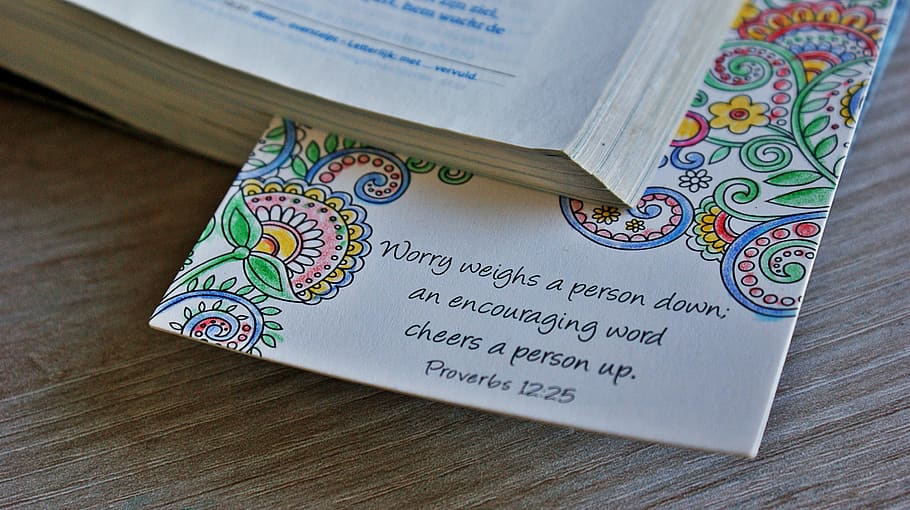 bem wacht de
overscipt - Letterlijk: met ... vervuld.
Worry weighs a person down;
an encouraging word
cheers a person up.
Proverbs 12:25